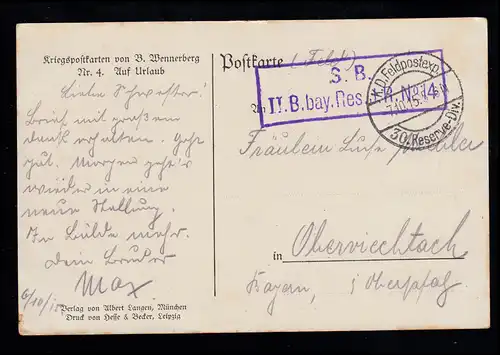 Kriegspostkarten von B. Wennerberg
Nr. 4. Auf Urlaub
Liebe Schwester!
Brief mit großem
Dank erhalten. Geht
gut. Morgen geht's
wieder in eine
neue Stellung.
In Bälde mehr.
Dein Bruder
Max
6/10/15
Verlag von Albert Langen, München
Druck von Hesse & Becker, Leipzig
Postkarte (Feld)
S. B.
II. B. bay. Res. R. No 14
K.D. Feldpostexp.
7.10.15
30. Reserve-Div.
An
Fräulein
in Oberviechtach
Bayern, Oberpfalz